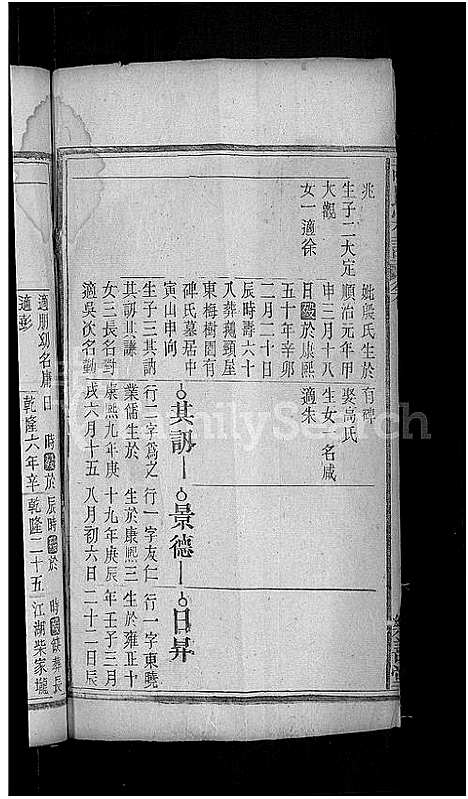 兆
生子二大定
大觀
女一適徐
氏生於
順治元年甲
申三月十八
日歿於康熙
五十年辛卯
二月二十日
辰時壽六十
八葬鵝頸屋
東梅樹園有
碑氏墓居中
寅山申向
生子三其訒
其訪其謙
女三長名對
適吳次名勤
適朋幼名庸
適彭
有碑
娶高氏
生女一名咸
適朱
其訒
行三字為之
業儒生於
康熙九年庚
戌六月十五
日 時歿於
乾隆六年辛
景德
行一字友仁
生於康熙三
十九年庚辰
八月初六日
辰時歿於
乾隆二十五
日昇
行一字東曉
生於雍正十
年壬子三月
二十二日辰
時歿缺葬長
江湖柴家壠
FamilySearch